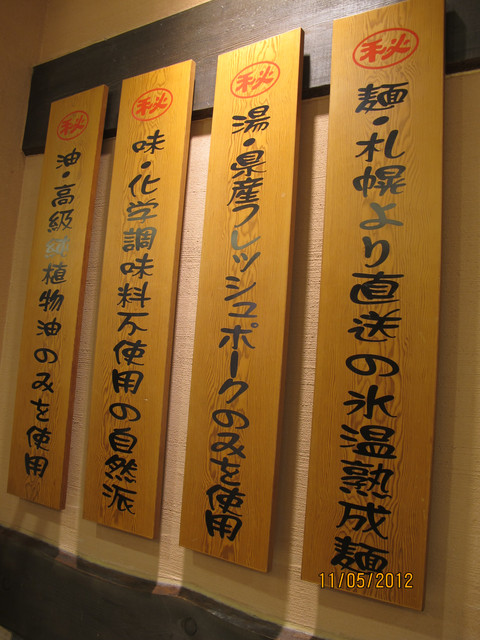 秘
麺・札幌より直送の氷温熟成麺
秘
湯・県産フレッシュポークのみを使用
秘
味・化学調味料不使用の自然派
秘
油・高級純植物油のみを使用
11/05/2012